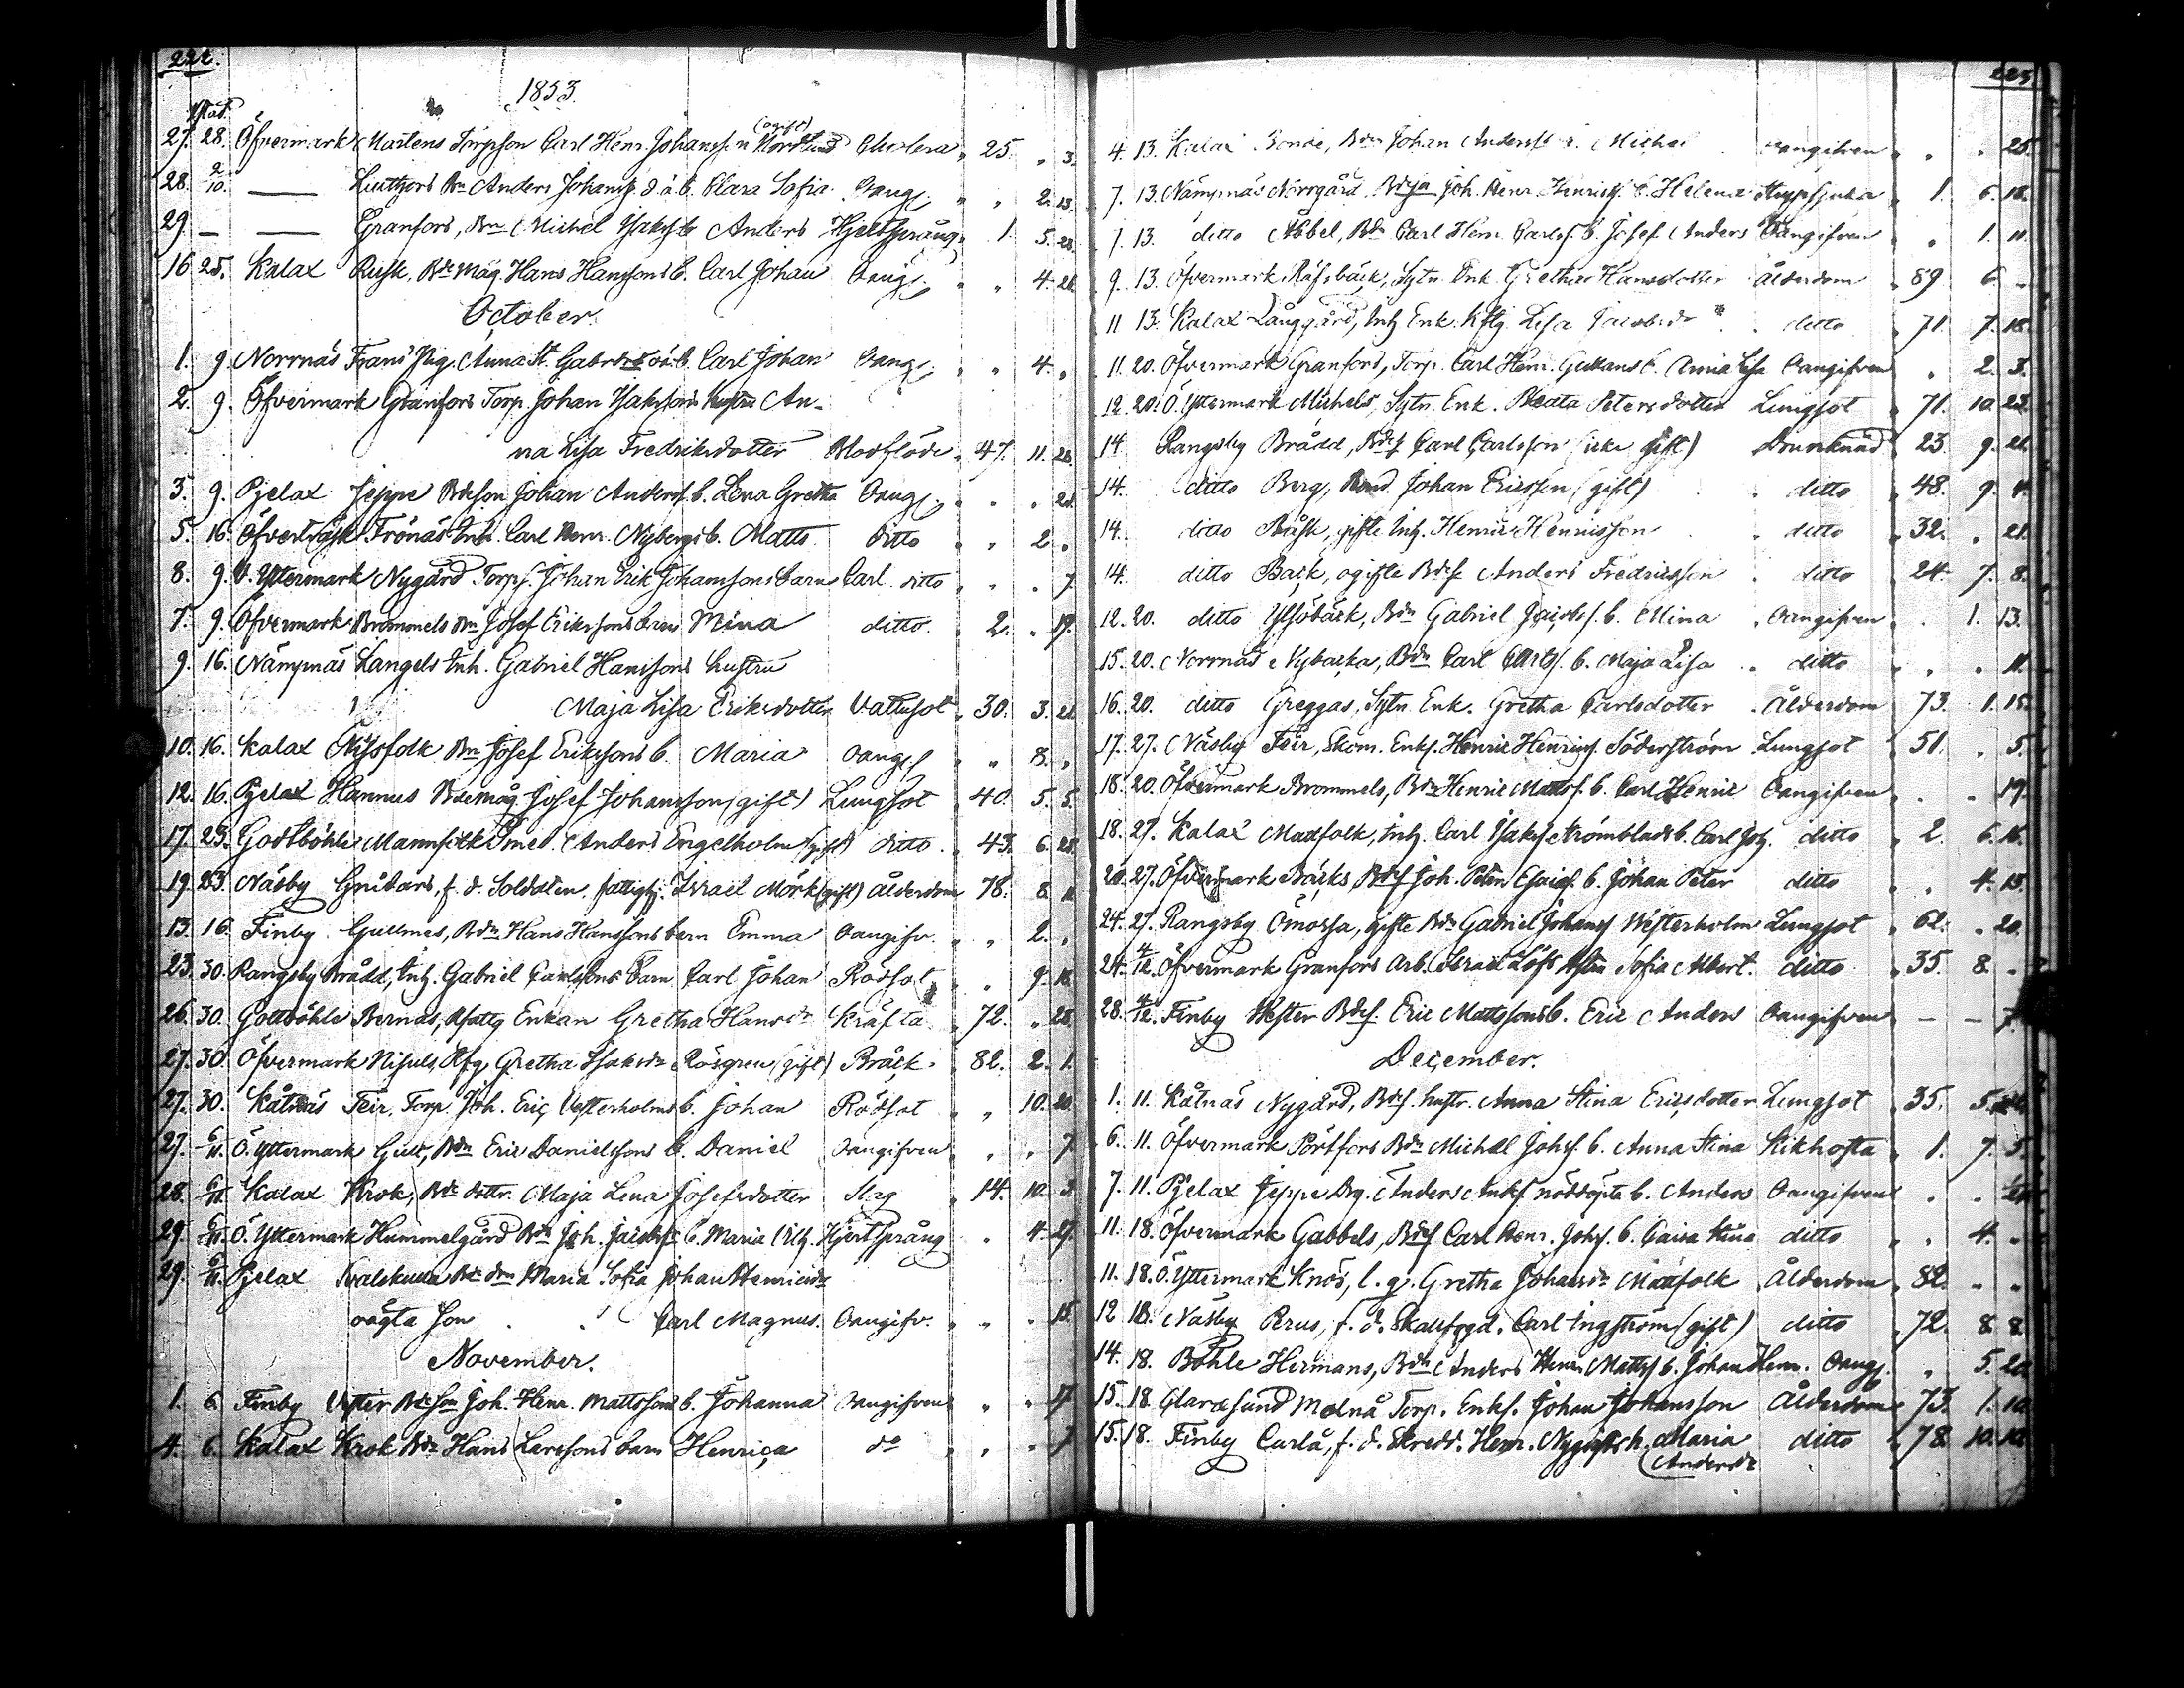 222.
1853.
27. 28. Öfvermark Mårtens Torpson Carl Henr. Johansson Nordlund (ogift) Cholera " 25. " 3.
28. 2/10. — Luthors Bn Anders Johans d. ä. b. Clara Sofia Oangf. " " 2. 13.
29. — — Granfors, Bn Michel Isaks b. Anders Hjertsprång " 1. 5. 28.
16 25. Kalax Rusk, Bde Måg Hans Hanssons b. Carl Johan Oangf. " " 4. 28.
October.
1. 9. Norrnäs Frans Pig. Anna St. Gabrsdr oä. b. Carl Johan Oangf. " " 4. "
2. 9. Öfvermark Granfors Torp. Johan Isakssons hustru An-
na Lisa Fredriksdotter Blodflöde " 47. 11. 28.
3. 9. Pjelax Jeppe Bdeson Johan Anderss. b. Lena Gretha Oangf. " " " 28.
5. 16. Öfverträsk Frönäs Inh. Carl Henr. Nybergs b. Matts ditto " " 2. "
8. 9. Ö. Yttermark Nygård Torps. Johan Erik Johanssons barn Carl ditto " " " 7
7. 9. Öfvermark Brommels Bn Josef Erikssons barn Mina ditto. " 2. " 19.
9. 16. Nämpnäs Langels Inh. Gabriel Hanssons hustru
Maja Lisa Eriksdotter Vattusot " 30. 3. 21.
10. 16. Kalax Nissfolk Bn Josef Erikssons b. Maria Oangf " " 8. "
12. 16. Pjelax Hannus Bdemåg Josef Johansson (gift) Lungsot " 40. 5. 5.
17. 23. Gottböhle Mannfolk Smed. Anders Engelholm (gift) ditto " 43. 6. 28.
19. 23. Näsby Gnistars, f. d. Soldaten, fattighj. Israel Mörk (gift) Ålderdom " 78. 8. 11.
13. 16. Finby Gullmes, Bdn Hans Hanssons barn Emma Oangifv. " " 2. "
23. 30. Rangsby Brådd, Inh. Gabriel Carlssons barn Carl Johan Rödsot " " 9. 18.
26. 30. Gottböhle Bernas, Rfattg Enkan Gretha Hansdr Kräfta " 72. " 28.
27. 30. Öfvermark Nisuls, Rfg. Gretha Isaksdr Rosgren (gift) Bråck " 82. 2. 1.
27. 30. Kåtnäs Teir, Torp. Joh. Eric Westerholms b. Johan Rödsot " " 10. 20.
27. 6/11. Ö. Yttermark Gull, Bdn Eric Danielssons b. Daniel Oangifven " " " 7
28. 6/11. Kalax Krok, Bde dottr. Maja Lena Josefsdotter Slag " 14. 10. 3.
29. 6/11. Ö. Yttermark Hummelgård Bdn Joh. Jacobss. b. Maria Vilh. Hjertsprång " 4. 27.
29. 6/11. Pjelax Maria Sofia Johan Henricsdr
oägta Son Carl Magnus. Oangifv. " " " 15.
November.
1. 6. Finby Vester Bdeson Joh. Henr. Mattssons b. Johanna Oangifven " " " 17
4. 6. Kalax Krok Bdn Hans Larssons barn Henrica do " " " 7
223.
4. 13. Kalax Bonde, Bdn Johan Anderss. b. Michel Oangifven " " " 25.
7. 13. Nämpnäs Norrgård, Joh. Henr. Henricss. b. Helena " 1. 6. 18.
7. 13. ditto Åbbel, Bdn Carl Henr. Carlss. b. Josef Anders Oangifven " " 1. 11.
9. 13. Öfvermark Räfsbäck, Sytn. Enk. Gretha Hansdotter Ålderdom " 89 6. "
11 13. Kalax Långgård, Inh. Enk. Lisa Jacobsdr " ditto " 71. 7. 18.
11. 20. Öfvermark Granfors, Torp. Carl Henr. b. Anna Lisa Oangifven " 2. 3.
12. 20. Ö. Yttermark Michels, Sytn. Enk. Beata Petersdotter Lungsot " 71. 10. 23.
14. Rangsby Brådd, Bdes Carl Carlsson (icke gift) Drunknad " 23. 9. 21.
14. ditto Berg, Bond. Johan Ericsson (gift) ditto " 48. 9. 4.
14. ditto Båsk, gifte Inh. Henric Henricsson ditto " 32. " 21.
14. ditto Back, ogifte Bdes. Anders Fredricsson ditto " 24. 7. 8.
12. 20. ditto Ytsöbäck, Bdn Gabriel Jacobs. b. Mina Oangifven " 1. 13.
15. 20. Norrnäs Nybacka, Bdn Carl Carlss. b. Maja Lisa ditto " " " 11.
16. 20. ditto Greggas, Sytn. Enk. Gretha Carlsdotter Ålderdom " 73. 1. 15.
17. 27. Näsby Teir, Skom. Enkf. Henric Henricss. Söderström Lungsot " 51. " 5.
18. 20. Öfvermark Brommels, Bdn Henric Mattss. b. Carl Henric Oangifven " " 19.
18. 27. Kalax Madfolk, Inh. Carl Isaks. Strömblads b. Carl Joh. ditto " 2. 6. 16.
20. 27. Öfvermark Bäcks Bdes Joh. Peter Esaiass. b. Johan Peter ditto " " 4. 15.
24. 27. Rangsby Ömossa, gifte Bdn Gabriel Johanss Westerholm Lungsot " 62. " 20.
24. 4/12. Öfvermark Granfors Arb. Israel Löfs hstru Sofia Albert. ditto " 35. 8. "
28. 4/12. Finby Wester Bdes. Eric Mattssons b. Eric Anders Oangifven — — 7.
December.
1. 11. Kåtnäs Nygård, Bdes. hustr. Anna Stina Ericsdotter Lungsot " 35. 5.
6. 11. Öfvermark Pörtfors Bdn Michel Johss. b. Anna Stina Kikhosta " 1. 7. 5.
7. 11. Pjelax Jeppe Dg. Anders Anders. nöddöpta b. Anders Oangifven " "
11. 18. Öfvermark Gabbels, Bdes Carl Henr. Johs. b. Caisa Stina ditto " " 4. "
11. 18. Ö. Yttermark Knös, l. g. Gretha Johansdr Madfolk Ålderdom " 82. " "
12 18. Näsby Perus, f. d. Skallfogd. Carl Ingström (gift) ditto " 72. 8. 8.
14. 18. Böhle Hermans, Bdn Anders Henr. Mattss. b. Johan Henr. Oangf. " 5. 20
15. 18. Glaresund Molnå Torp. Enkf. Johan Johansson Ålderdom " 73. 1. 10.
15. 18. Finby Carlå, f. d. Skredd. Henr. h. Maria ditto " 78. 10. 12.
Andersdr